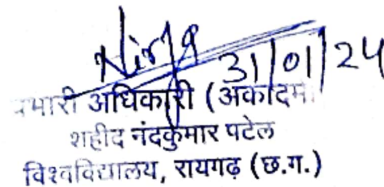 Nirja 31/01/24
प्रभारी अधिकारी (अकादमी
शहीद नंदकुमार पटेल
विश्वविद्यालय, रायगढ़ (छ.ग.)